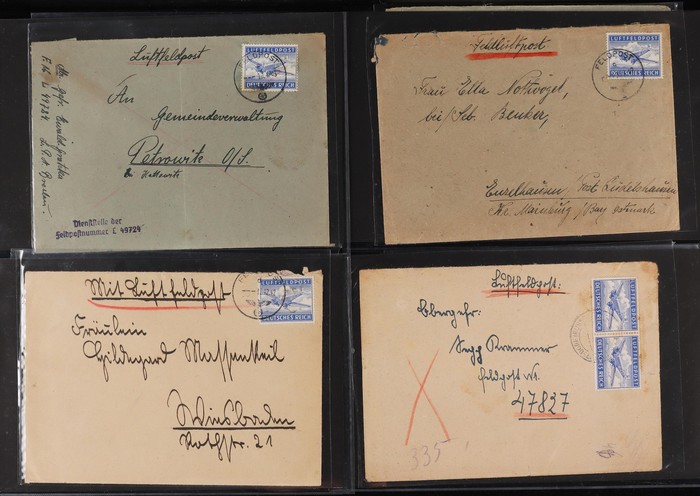 Luftfeldpost
LUFTFELDPOST
DEUTSCHES REICH
FELDPOST
An
Gemeindeverwaltung
Petrowitz O/S.
Kattowitz
Dienststelle der
Feldpostnummer L 49724
L 49724
Feldluftpost
LUFTFELDPOST
DEUTSCHES REICH
FELDPOST
Frau Ella Notvogel,
bei Seb. Benker,
Enzelhausen, Post Rudelzhausen
Kr. Mainburg / Bay. Ostmark
Mit Luftfeldpost
LUFTFELDPOST
DEUTSCHES REICH
Fräulein
Hildegard Massenkeil
Wiesbaden
Rothstr. 21
Luftfeldpost:
LUFTFELDPOST
DEUTSCHES REICH
LUFTFELDPOST
DEUTSCHES REICH
Obergefr:
Sepp Krammer
Feldpost Nr.
47827
335